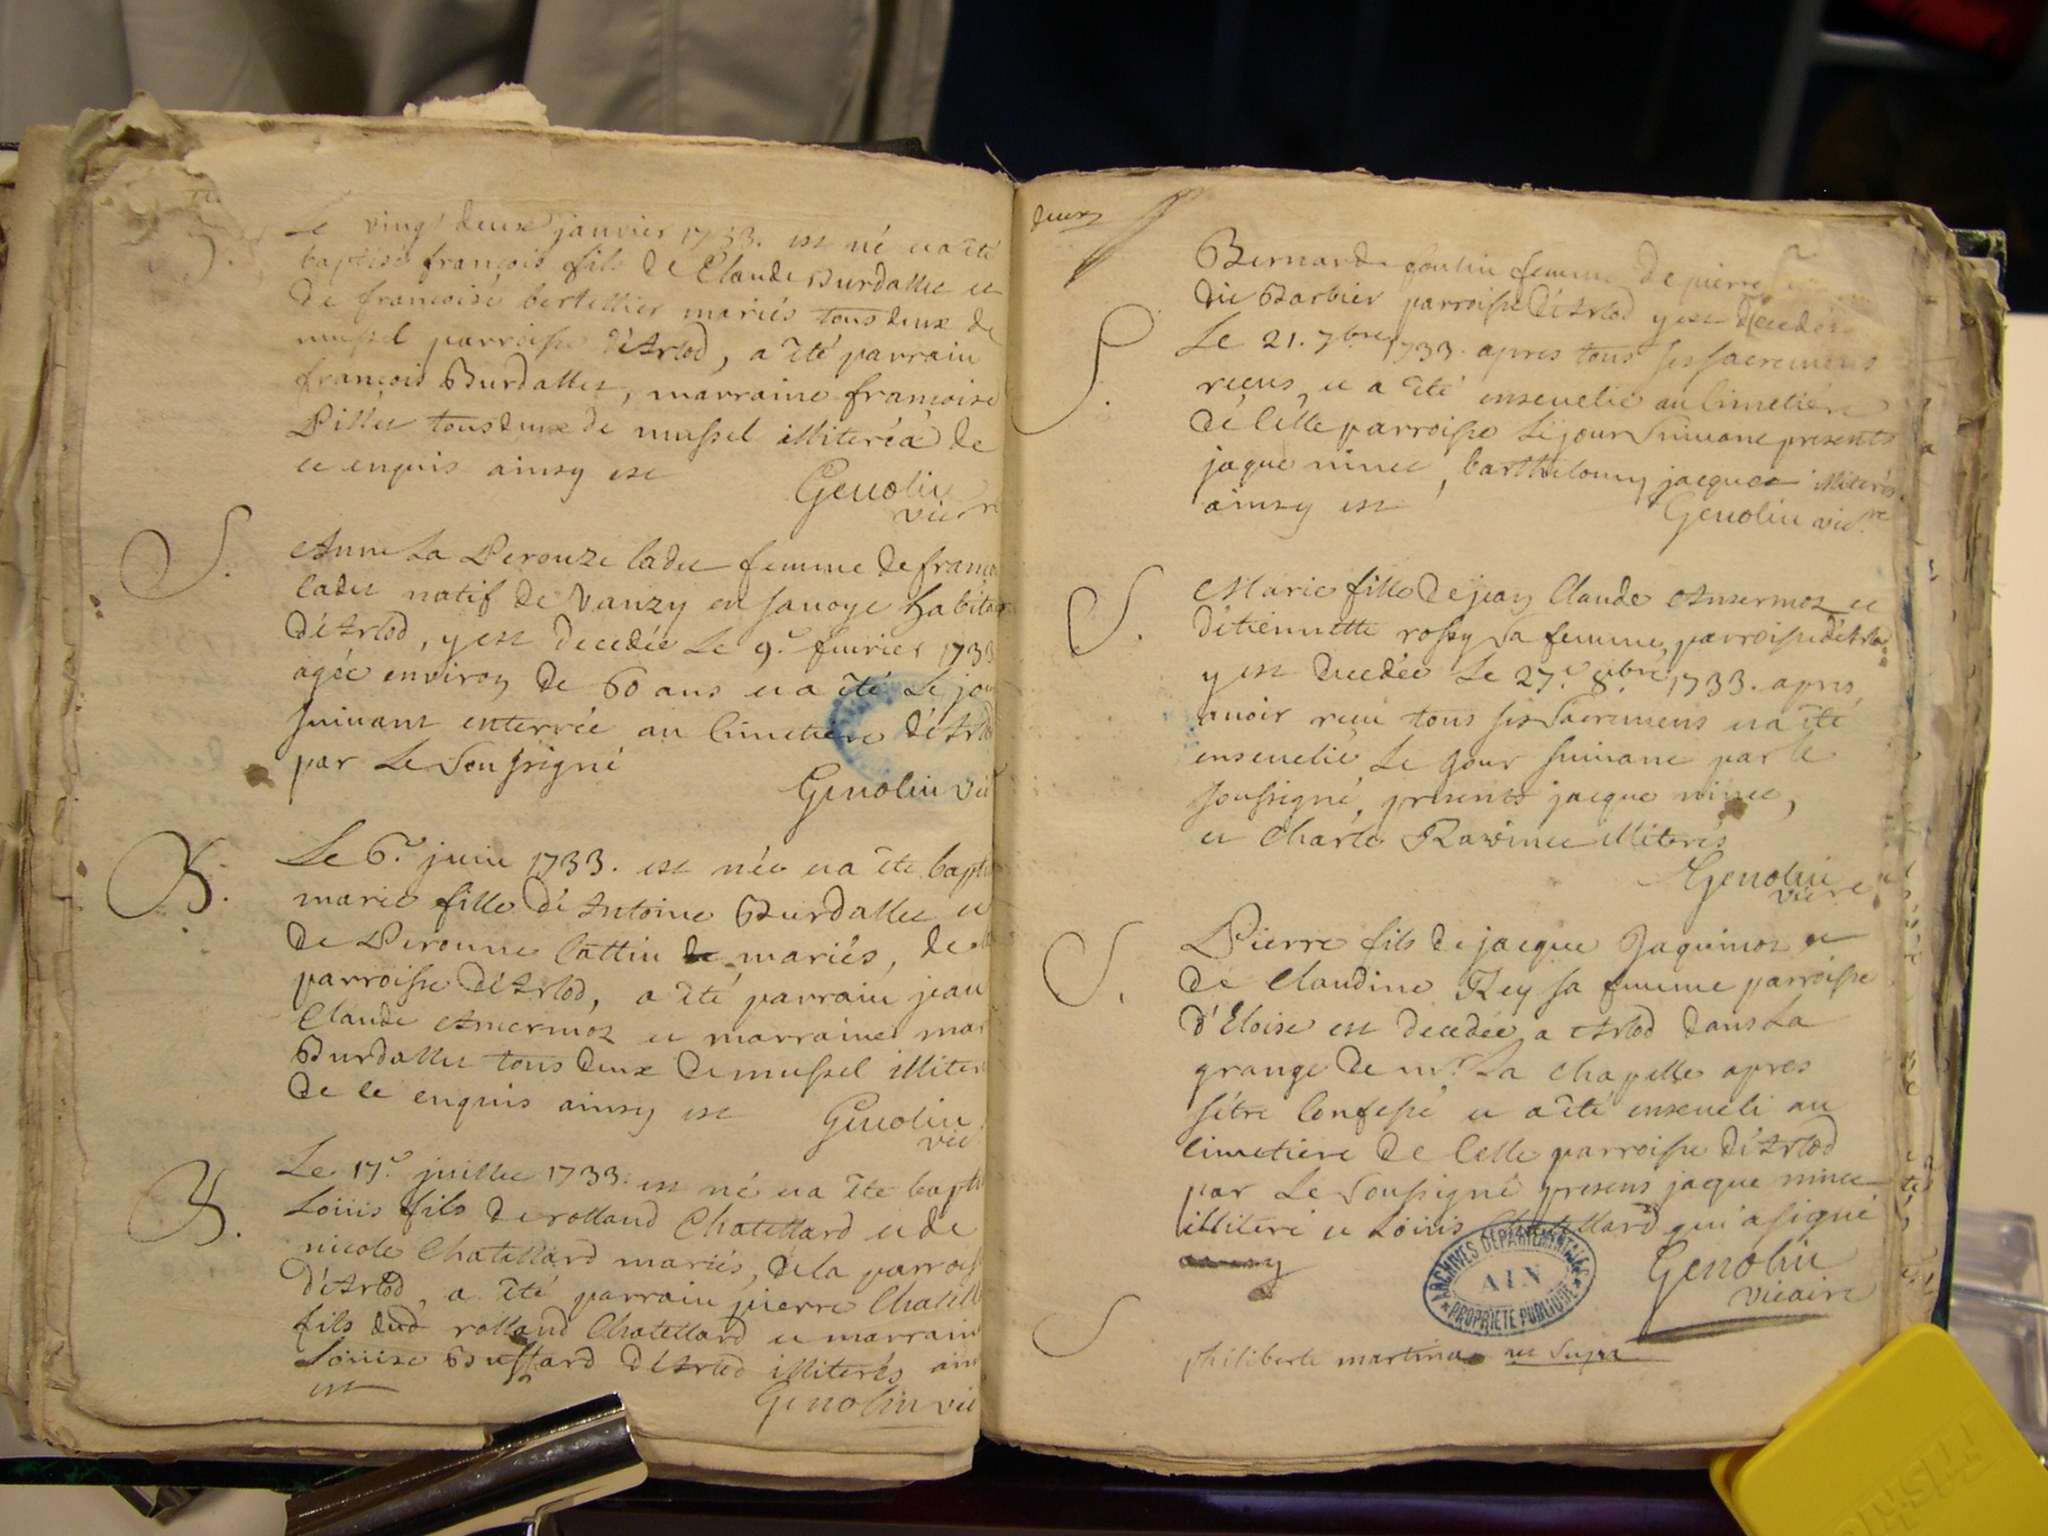 Le vingt deuxe janvier 1733. est né et a êté
baptisé françois fils de Claude Burdallet et
de francoise bertellier mariés tous deux de
mussel parroisse d'Arlod, a êté parrain
françois Burdallet, marraine francoise
Pillet tous deux de mussel illiteré de
ce enquis ainsy est
Genolin
vicre
S.
Anne La Perouze Cadet femme de franço
Cadet natif de Vanzy en Savoye habitan
d'Arlod, y est decedée Le 9.e fuvrier 1733
agée environ de 60 ans et a êté Le jou
suivant enterrée au Cimetiere d'Arlod
par Le Soussigné
Genolin vic
B.
Le 6.e juin 1733. est née et a êté bapti
marie fille d'Antoine Burdallet et
de Peronne Cattin mariés, de
parroisse d'Arlod, a êté parrain jean
Claude Ansermoz et marraine mar
Burdallet tous deux de mussel illiter
de ce enquis ainsy est
Genolin
vic
B.
Le 17.e juillet 1733. est né et a êté bapti
Loüis fils de rolland Chatellard et de
nicole Chatellard mariés, de la parroiss
d'Arlod, a êté parrain pierre Chatell
fils dud rolland Chatellard et marrain
Loüise Bussard d'Arlod illiterés ain
est
Genolin vic
deux
Bernarde femme de pierre
dit Barbier parroisse d'Arlod y est decedée
S.
Le 21. 7bre 1733. apres tous ses sacremens
recus, et a êté ensevelie au Cimetiere
de Celle parroisse Le jour Suivant presents
jaque ninet, barthelemy jacquet illiterés
ainsy est
Genolin vicre
S.
Marie fille de jean Claude Ansermoz et
d'etiennette rossy Sa femme, parroisse d'Arlod
y est decedée Le 27.e 8bre 1733. apres
avoir recu tous ses Sacremens et a êté
ensevelie Le jour suivant par le
soussigné, presents jacque ninet,
et Charle Ravinet illiterés
Genolin
vicre
S.
Pierre fils de jacque Jaquinoz et
de Claudine Rey sa femme parroisse
d'Eloise est decedée a Arlod dans La
grange de mr. La Chapelle apres
s'être Confessé et a êté enseveli au
Cimetiere de Celle parroisse d'Arlod
par Le Soussigné presens jacque ninet
illiteré et Loüis Chatellard qui a signé
Genolin
vicaire
ARCHIVES DÉPARTEMENTALES
AIN
PROPRIÉTÉ PUBLIQUE
S
philiberte martinaz ut Supra